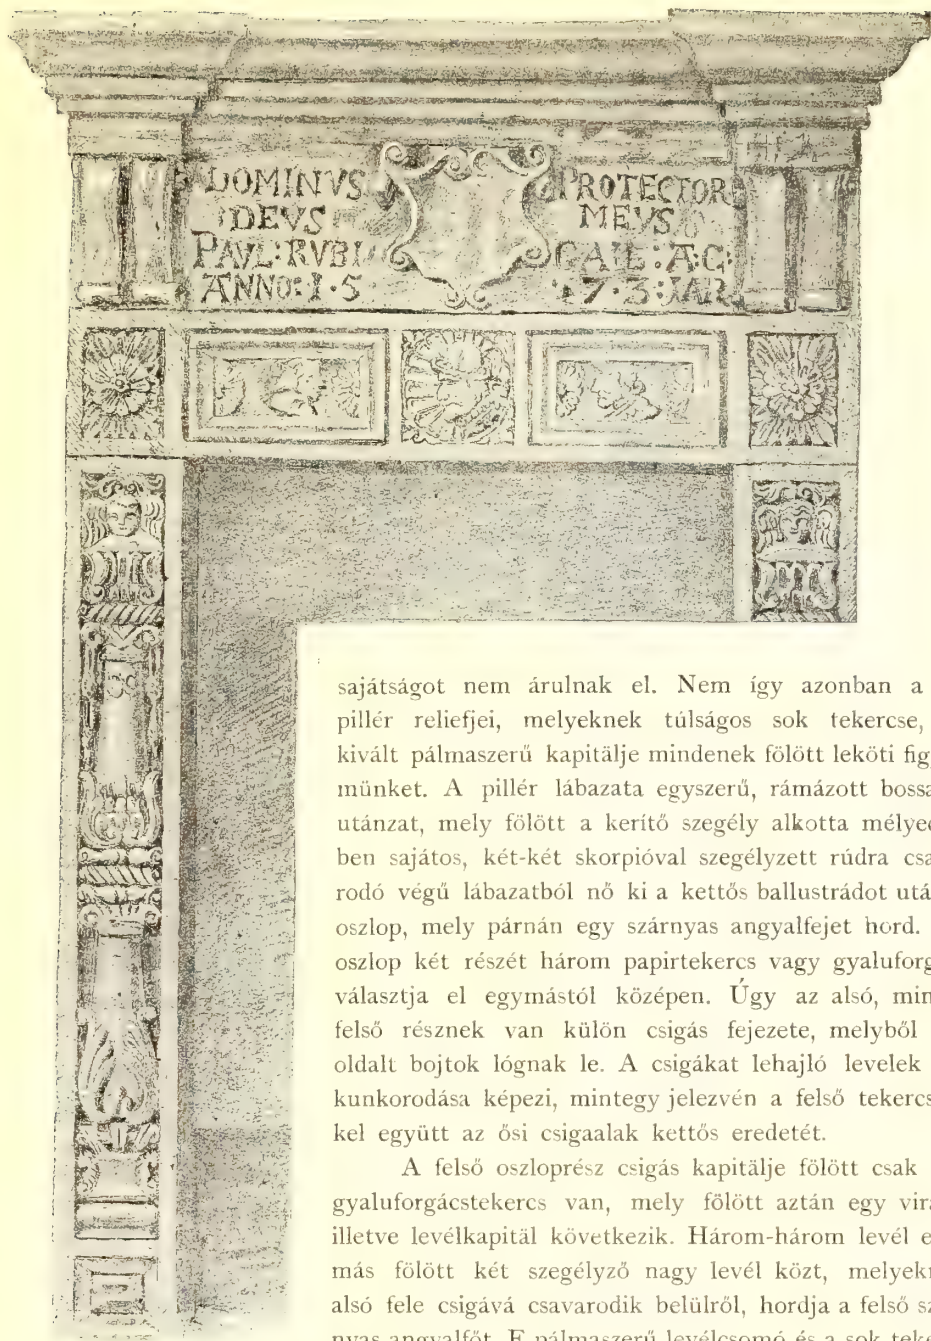 DOMINVS PROTECTOR
DEVS MEVS
PAVL: RVBI
ANNO: 1 · 5 7 · 3 : IAR
sajátságot nem árulnak el. Nem így azonban a
pillér reliefjei, melyeknek túlságos sok tekercse,
kivált pálmaszerű kapitälje mindenek fölött leköti fig
münket. A pillér lábazata egyszerű, rámázott bossa
utánzat, mely fölött a kerítő szegély alkotta mélye
ben sajátos, két-két skorpióval szegélyzett rúdra csa
rodó végű lábazatból nő ki a kettős ballustrádot utá
oszlop, mely párnán egy szárnyas angyalfejet hord.
oszlop két részét három papirtekercs vagy gyaluforg
választja el egymástól középen. Úgy az alsó, min
felső résznek van külön csigás fejezete, melyből
oldalt bojtok lógnak le. A csigákat lehajló levelek
kunkorodása képezi, mintegy jelezvén a felső tekercs
kel együtt az ősi csigaalak kettős eredetét.
A felső oszloprész csigás kapitälje fölött csak
gyaluforgácstekercs van, mely fölött aztán egy vir
illetve levélkapitäl következik. Három-három levél e
más fölött két szegélyző nagy levél közt, melyek
alsó fele csigává csavarodik belülről, hordja a felső sz
nyas angyalfőt. E pálmaszerű levélcsomó és a sok tek